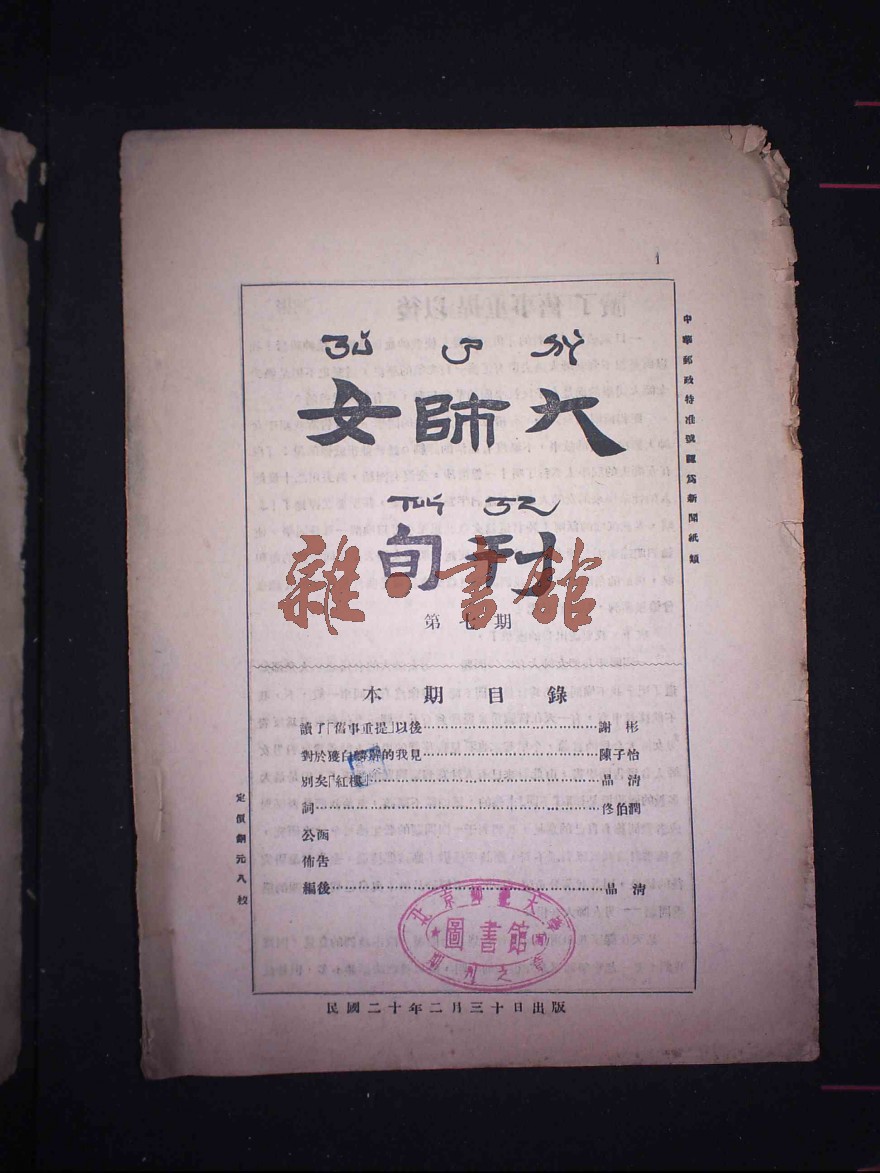 女師大
旬刊
雜·書館
第七期
中華郵政特准號認爲新聞紙類
本期目錄
讀了「舊事重提」以後……謝彬
對於獲白麟解的我見……陳子怡
別矣「紅樓……晶淸
詞……佟伯潤
公函
佈告
編後……晶淸
定價銅元八枚
北京師範大學
圖書館
民國二十年二月三十日出版